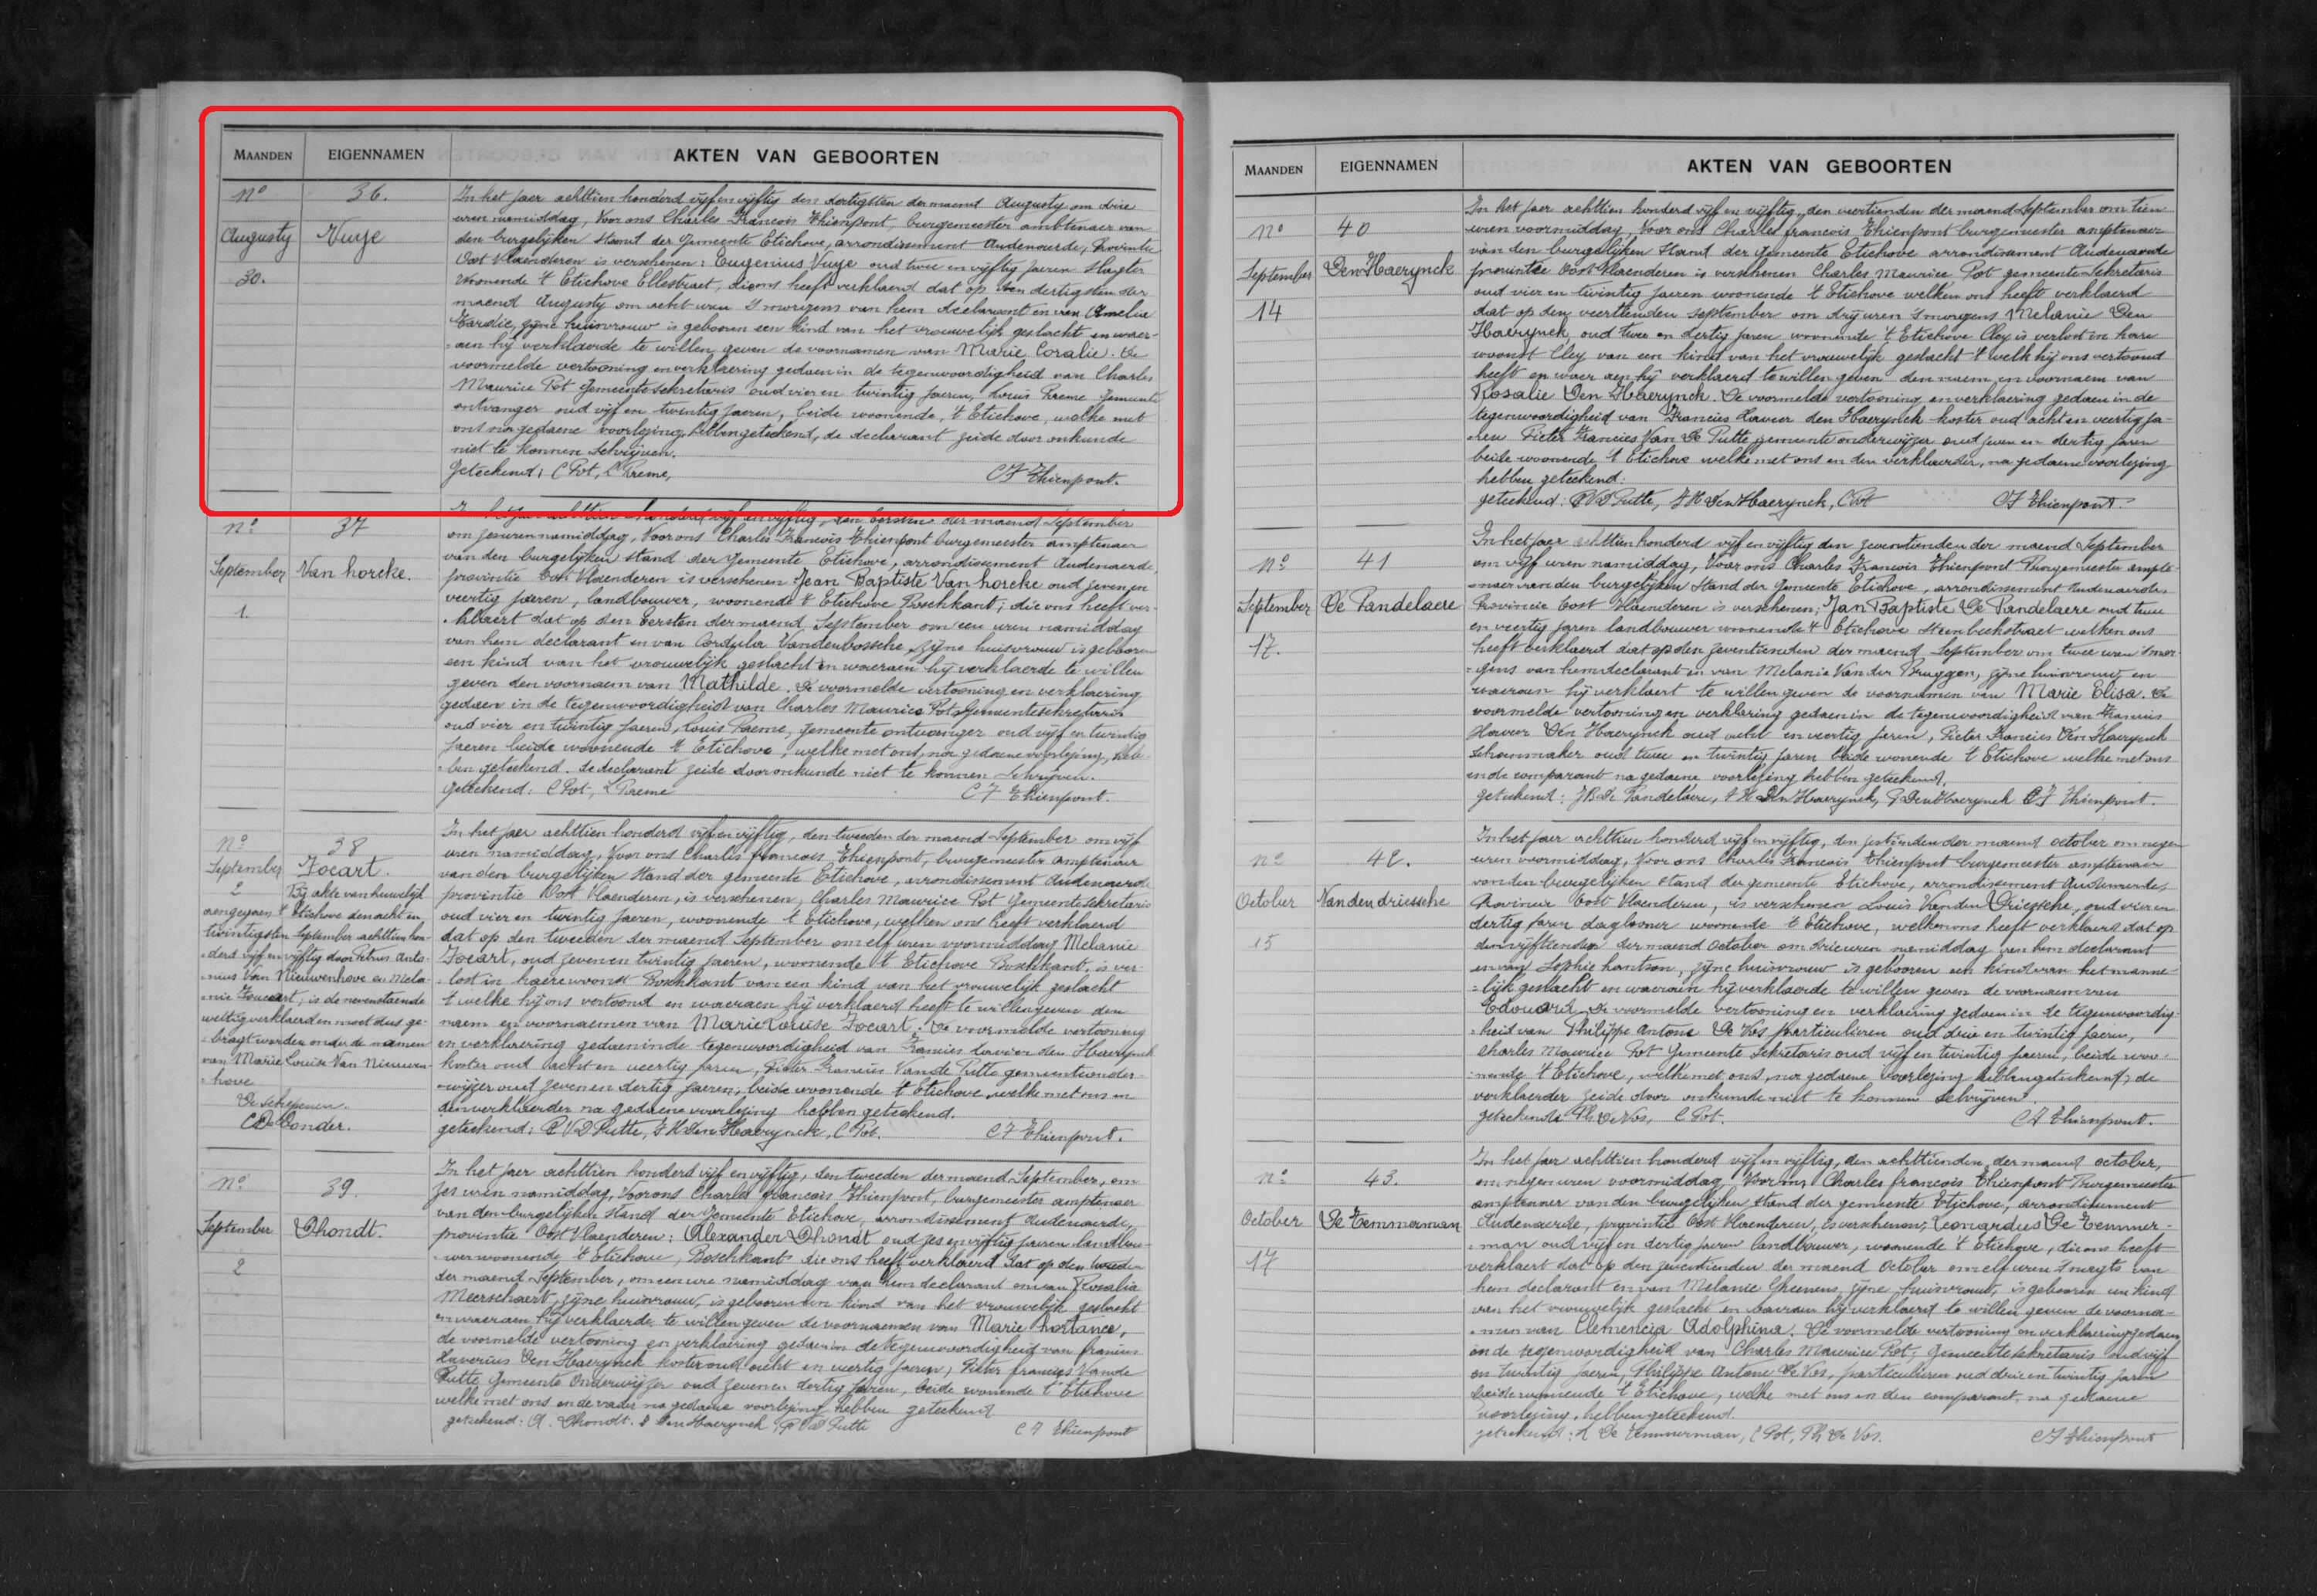 MAANDEN EIGENNAMEN AKTEN VAN GEBOORTEN
Nº 36.
Augusty Vuye
30.
In het jaer achttien honderd vijf en vijftig den dertigsten der maend Augusty om drie
uren namiddag, Voor ons Charles Francois Thienpont, burgemeester ambtenaer van
den burgelijken stand der gemeente Etichove, arrondissement Audenaerde, Provintie
Oost Vlaenderen is verschenen: Eugenius Vuye oud twee en vijftig jaeren
Woonende 't Etichove Ellestraet, dieons heeft verklaerd dat op den dertigsten der
maend Augusty om acht uren 's morgens van hem declarant en van Amelie
zijne huisvrouw is gebooren een kind van het vrouwelijk geslacht en waer-
aen hij verklaerde te willen geven de voornamen van Marie Coralie. De
voormelde vertooning en verklaering gedaen in de tegenwoordigheid van Charles
Maurice Pot Gemeentesekretaris oud vier en twintig jaeren, Louis Preme Gemeente
ontvanger oud vijf en twintig jaeren, beide woonende, 't Etichove, welke met
ons na gedaene voorlezing hebben geteekend, de declarant zeide door onkunde
niet te konnen schrijven.
Geteekend; C Pot, L Preme, CF Thienpont.
nº 37
September Van horcke.
1.
In het jaer achttien honderd vijf en vijftig, den eersten der maend September
om zes uren namiddag, Voor ons Charles Francois Thienpont burgemeester amptenaer
van den burgelijken stand der Gemeente Etichove, arrondissement Audenaerde,
provintie Oost Vlaenderen is verschenen Jean Baptiste Van horcke oud zeven en
veertig jaeren, landbouwer, woonende 't Etichove Boschkant; die ons heeft ver-
klaert dat op den Eersten der maend September om een uren namiddag
van hem declarant en van Cordula Vandenbossche, zijne huisvrouw is gebooren
een kind van het vrouwelijk geslacht en waeraen hij verklaerde te willen
geven den voornaem van Mathilde. De voormelde vertooning en verklaering
gedaen in de tegenwoordigheid van Charles Maurice Pot, Gemeentesekretaris
oud vier en twintig jaeren, Louis Preme, gemeente ontvanger oud vijf en twintig
jaeren beide woonende 't Etichove, welke met ons, na gedaene voorlezing, heb-
ben geteekend. De declarant zeide door onkunde niet te konnen schrijven.
Geteekend: C Pot, L Preme CF Thienpont.
Nº 38
September Focart.
2 Bij akte van heuwelijk
aengegaen 't Etichove den acht en
twintigsten September achttien hon-
derd vijf en vijftig door Petrus Anto-
nius Van Nieuwenhove en Mela-
nie Foucart, is de nevenstaende
wettig verklaerd en moet dus ge-
bragt worden onder de namen
van Marie Louise Van Nieuwen-
hove
De schepenen.
C De Donder.
In het jaer achttien honderd vijf en vijftig, den tweeden der maend September om vijf
uren namiddag, Voor ons Charles francois Thienpont, burgemeester amptenaer
van den burgelijken stand der gemeente Etichove, arrondissement Audenaerde
provintie Oost Vlaenderen, is verschenen, Charles Maurice Pot Gemeentesekretaris
oud vier en twintig jaeren, woonende 't Etichove, welken ons heeft verklaerd
dat op den tweeden der maend September om elf uren voormiddag Melanie
Focart, oud zeven en twintig jaeren, woonende 't Etichove Boschkant, is ver-
lost in haere woonst Boschkant van een kind van het vrouwelijk geslacht
't welke hij ons vertoond en waeraen hij verklaerd heeft te willen geven den
naem en voornaemen van Marie Louise Focart. De voormelde vertooning
en verklaering gedaen in de tegenwoordigheid van Francies Xavier den Haerynck
koster oud acht en veertig jaren, Pieter Francies Van de Putte gemeente onder-
wijzer oud zeven en dertig jaeren, beide woonende 't Etichove welke met ons en
den verklaerder na gedaene voorlezing hebben geteekend.
geteekend: P V D Putte, F X Den Haerynck, C Pot. CF Thienpont.
nº 39.
September Dhondt.
2
In het jaer achttien honderd vijf en vijftig, den tweeden der maend September, om
zes uren namiddag, Voor ons Charles francois Thienpont, burgemeester amptenaer
van den burgelijken stand der Gemeente Etichove, arrondissement Audenaerde,
provintie Oost Vlaenderen: Alexander Dhondt oud zes en vijftig jaeren landbou-
wer woonende 't Etichove, Boschkant die ons heeft verklaerd dat op den tweeden
der maend September, om een ure namiddag van hem declarant en van Rosalia
Meerschaert, zijne huisvrouw, is gebooren een kind van het vrouwelijk geslacht
en waeraen hij verklaerde te willen geven de voornaemen van Marie hortance,
de voormelde vertooning en verklaering gedaen in de tegenwoordigheid van francies
Xaverius Den Haerynck koster oud acht en veertig jaeren, Pieter francies Van de
Putte Gemeente Onderwijzer oud zeven en dertig jaren, beide wonende 't Etichove
welke met ons en de vader na gedaene voorlezing hebben geteekend
geteekend: A. Dhondt. F Den Haerynck, P V D Putte CF Thienpont
MAANDEN EIGENNAMEN AKTEN VAN GEBOORTEN
nº 40
September Den Haerynck
14
In het jaer achttien honderd vijf en vijftig, den veertienden der maend September om tien
uren voormiddag, Voor ons Charles francois Thienpont burgemeester amptenaer
van den burgelijken stand der gemeente Etichove arrondissement Audenaerde
provintie Oost Vlaenderen is verschenen Charles Maurice Pot gemeente Sekretaris
oud vier en twintig jaeren woonende 't Etichove welken ons heeft verklaerd
dat op den veertienden September om drij uren 's morgens Melanie Den
Haerynck, oud twee en dertig jaren woonende 't Etichove Cley is verlost in hare
woonst Cley van een kind van het vrouwelijk geslacht 't welk hij ons vertoond
heeft en waer aen hij verklaerd te willen geven den naem en voornaem van
Rosalie Den Haerynck. De voormelde vertooning en verklaering gedaen in de
tegenwoordigheid van Francies Xavier den Haerynck koster oud acht en veertig ja-
ren Pieter Francies Van De Putte gemeente onderwijzer oud zeven en dertig jaren
beide woonende 't Etichove welke met ons en den verklaerder, na gedaene voorlezing
hebben geteekend:
geteekend: P V D Putte, F X Den Haerynck, C Pot CF Thienpont.
Nº 41
September De Pandelaere
17.
In het jaer achttien honderd vijf en vijftig den zeventienden der maend September
om vijf uren namiddag, Voor ons Charles Francois Thienpont Burgemeester ampte-
naer van den burgelijken Stand der Gemeente Etichove, arrondissement Audenaerde
Provincie Oost Vlaenderen is verschenen; Jan Baptiste De Pandelaere oud twee
en veertig jaren landbouwer woonende 't Etichove Steenbeekstraet welken ons
heeft verklaerd dat op den zeventienden der maend September om twee uren 's mor-
gens van hem declarant en van Melanie Van der Bruggen, zijne huisvrouw, en
waeraen hij verklaert te willen geven de voornamen van Marie Elisa. De
voormelde vertooning en verklaring gedaen in de tegenwoordigheid van Francies
Xavier Den Haerynck oud acht en veertig jaren, Pieter Francies Den Haerynck
Schoenmaker oud twee en twintig jaren beide wonende 't Etichove welke met ons
en de comparant na gedaene voorlezing hebben geteekend,
geteekend: JB De Pandelaere, F X Den Haerynck, P Den Haerynck CF Thienpont.
nº 42.
October Vanden driessche
15
In het jaer achttien honderd vijf en vijftig, den zestienden der maend october om negen
uren voormiddag, Voor ons Charles Francois Thienpont burgemeester amptenaer
van den burgelijken stand der gemeente Etichove, arrondissement Audenaerde,
Provincie Oost Vlaenderen, is verschenen Louis Vanden Driessche, oud vier en
dertig jaren daglooner woonende 't Etichove, welken ons heeft verklaerd dat op
den vijftienden der maend October om drie uren namiddag van hem declarant
en van Sophie hantson, zijne huisvrouw is gebooren een kind van het manne-
lijk geslacht en waeraen hij verklaerde te willen geven de voornaem van
Edouard. De voormelde vertooning en verklaering gedaen in de tegenwoordig-
heid van Philippe Antone De Vos particulieren oud drie en twintig jaeren,
Charles Maurice Pot Gemeente Sekretaris oud vijf en twintig jaeren, beide woo-
nende 't Etichove, welke met ons, na gedaene voorlezing hebben geteekend; de
verklaerder zeide door onkunde niet te konnen Schrijven.
geteekend: Ph De Vos, C Pot. CF Thienpont.
Nº 43.
October De Temmerman
17
In het jaer achttien honderd vijf en vijftig, den achttienden der maend october,
om negen uren voormiddag Voor ons Charles francois Thienpont Burgemeester
amptenaer van den burgelijken stand der gemeente Etichove, arrondissement
Audenaerde, provintie Oost Vlaenderen, is verschenen; Leonardus De Temmer-
man oud vijf en dertig jaren landbouwer, woonende 't Etichove, die ons heeft
verklaert dat op den zeventienden der maend October om elf uren 's nagts van
hem declarant en van Melanie Gheenens, zijne huisvrouw, is gebooren een kind
van het vrouwelijk geslacht en waeraen hij verklaerd te willen geven de voorna-
men van Clemencia Adolphina. De voormelde vertooning en verklaering gedaen
in de tegenwoordigheid van Charles Maurice Pot; Gemeente sekretaris oud vijf
en twintig jaren, Philippe Antone De Vos, particulieren oud drie en twintig jaren
beide woonende 't Etichove, welke met ons en den comparant na gedaene
voorlezing, hebben geteekend.
geteekend: L De Temmerman, C Pot, Ph De Vos. CF Thienpont